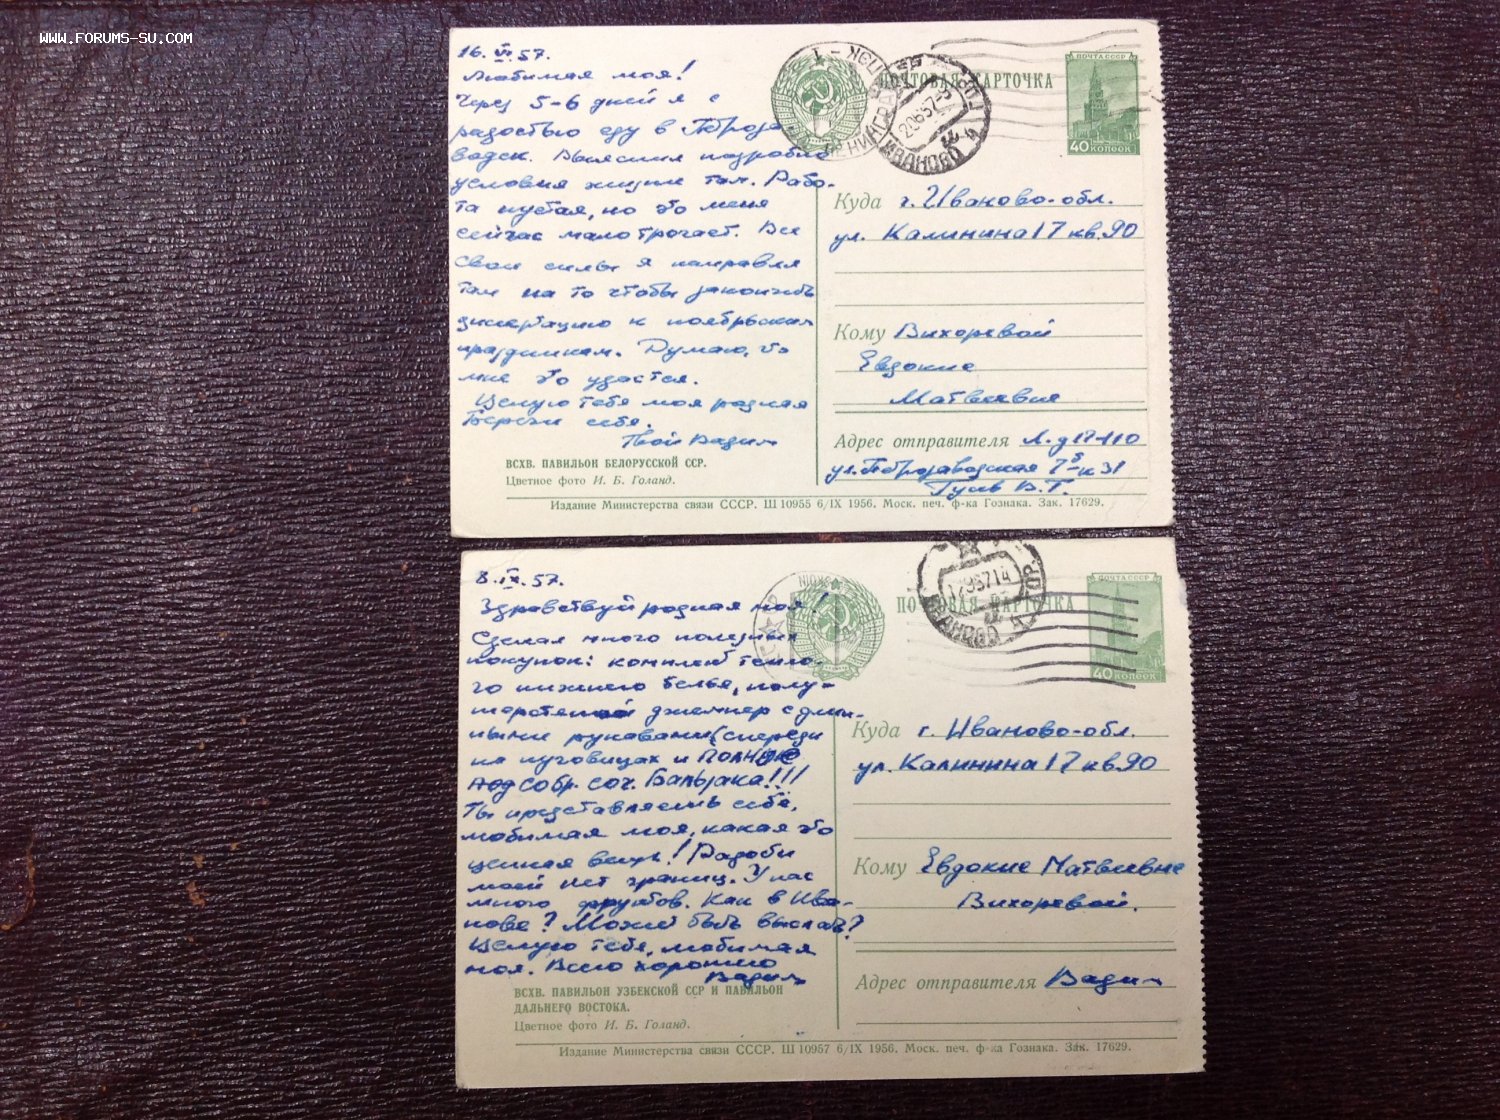 WWW.FORUMS-SU.COM
16.VI.57.
Любимая моя!
Через 5-6 дней я с
радостью еду в Петроза-
водск. Выяснил подробно
условия жизни там. Рабо-
та пустая, но это меня
сейчас мало трогает. Все
свои силы я направлю
там на то чтобы закончить
диссертацию к ноябрьским
праздникам. Думаю, что
мне это удастся.
Целую тебя моя родная
Береги себя.
Твой Вадим
ВСХВ. ПАВИЛЬОН БЕЛОРУССКОЙ ССР.
Цветное фото И. Б. Голанд.
ПОЧТОВАЯ КАРТОЧКА
ПОЧТА СССР
40 КОПЕЕК
ЛЕНИНГРАД
ИВАНОВО
Куда г. Иваново-обл.
ул. Калинина 17 кв. 90
Кому Вихоревой
Евдокие
Матвеевне
Адрес отправителя
ул. Петрозаводская
Издание Министерства связи СССР. Ш 10955 6/IX 1956. Моск. печ. ф-ка Гознака. Зак. 17629.
8.IX.57.
Здравствуй родная моя!
Сделал много полезных
покупок: комплект тепло-
го нижнего белья, полу-
шерстяной джемпер с длин-
ными рукавами (спереди
на пуговицах и ПОЛНОЕ
под собр. соч. Бальзака!!!
Ты представляешь себе,
любимая моя, какая это
ценная вещь! Радости
моей нет границ. У нас
много фруктов. Как в Ива-
нове? Может быть выслать?
Целую тебя, любимая
моя. Всего хорошего
Вадим
ВСХВ. ПАВИЛЬОН УЗБЕКСКОЙ ССР И ПАВИЛЬОН
ДАЛЬНЕГО ВОСТОКА.
Цветное фото И. Б. Голанд.
ПОЧТОВАЯ КАРТОЧКА
ПОЧТА СССР
40 КОПЕЕК
ИВАНОВО
Куда г. Иваново-обл.
ул. Калинина 17 кв. 90
Кому Евдокие Матвеевне
Вихоревой.
Адрес отправителя Вадим
Издание Министерства связи СССР. Ш 10957 6/IX 1956. Моск. печ. ф-ка Гознака. Зак. 17629.